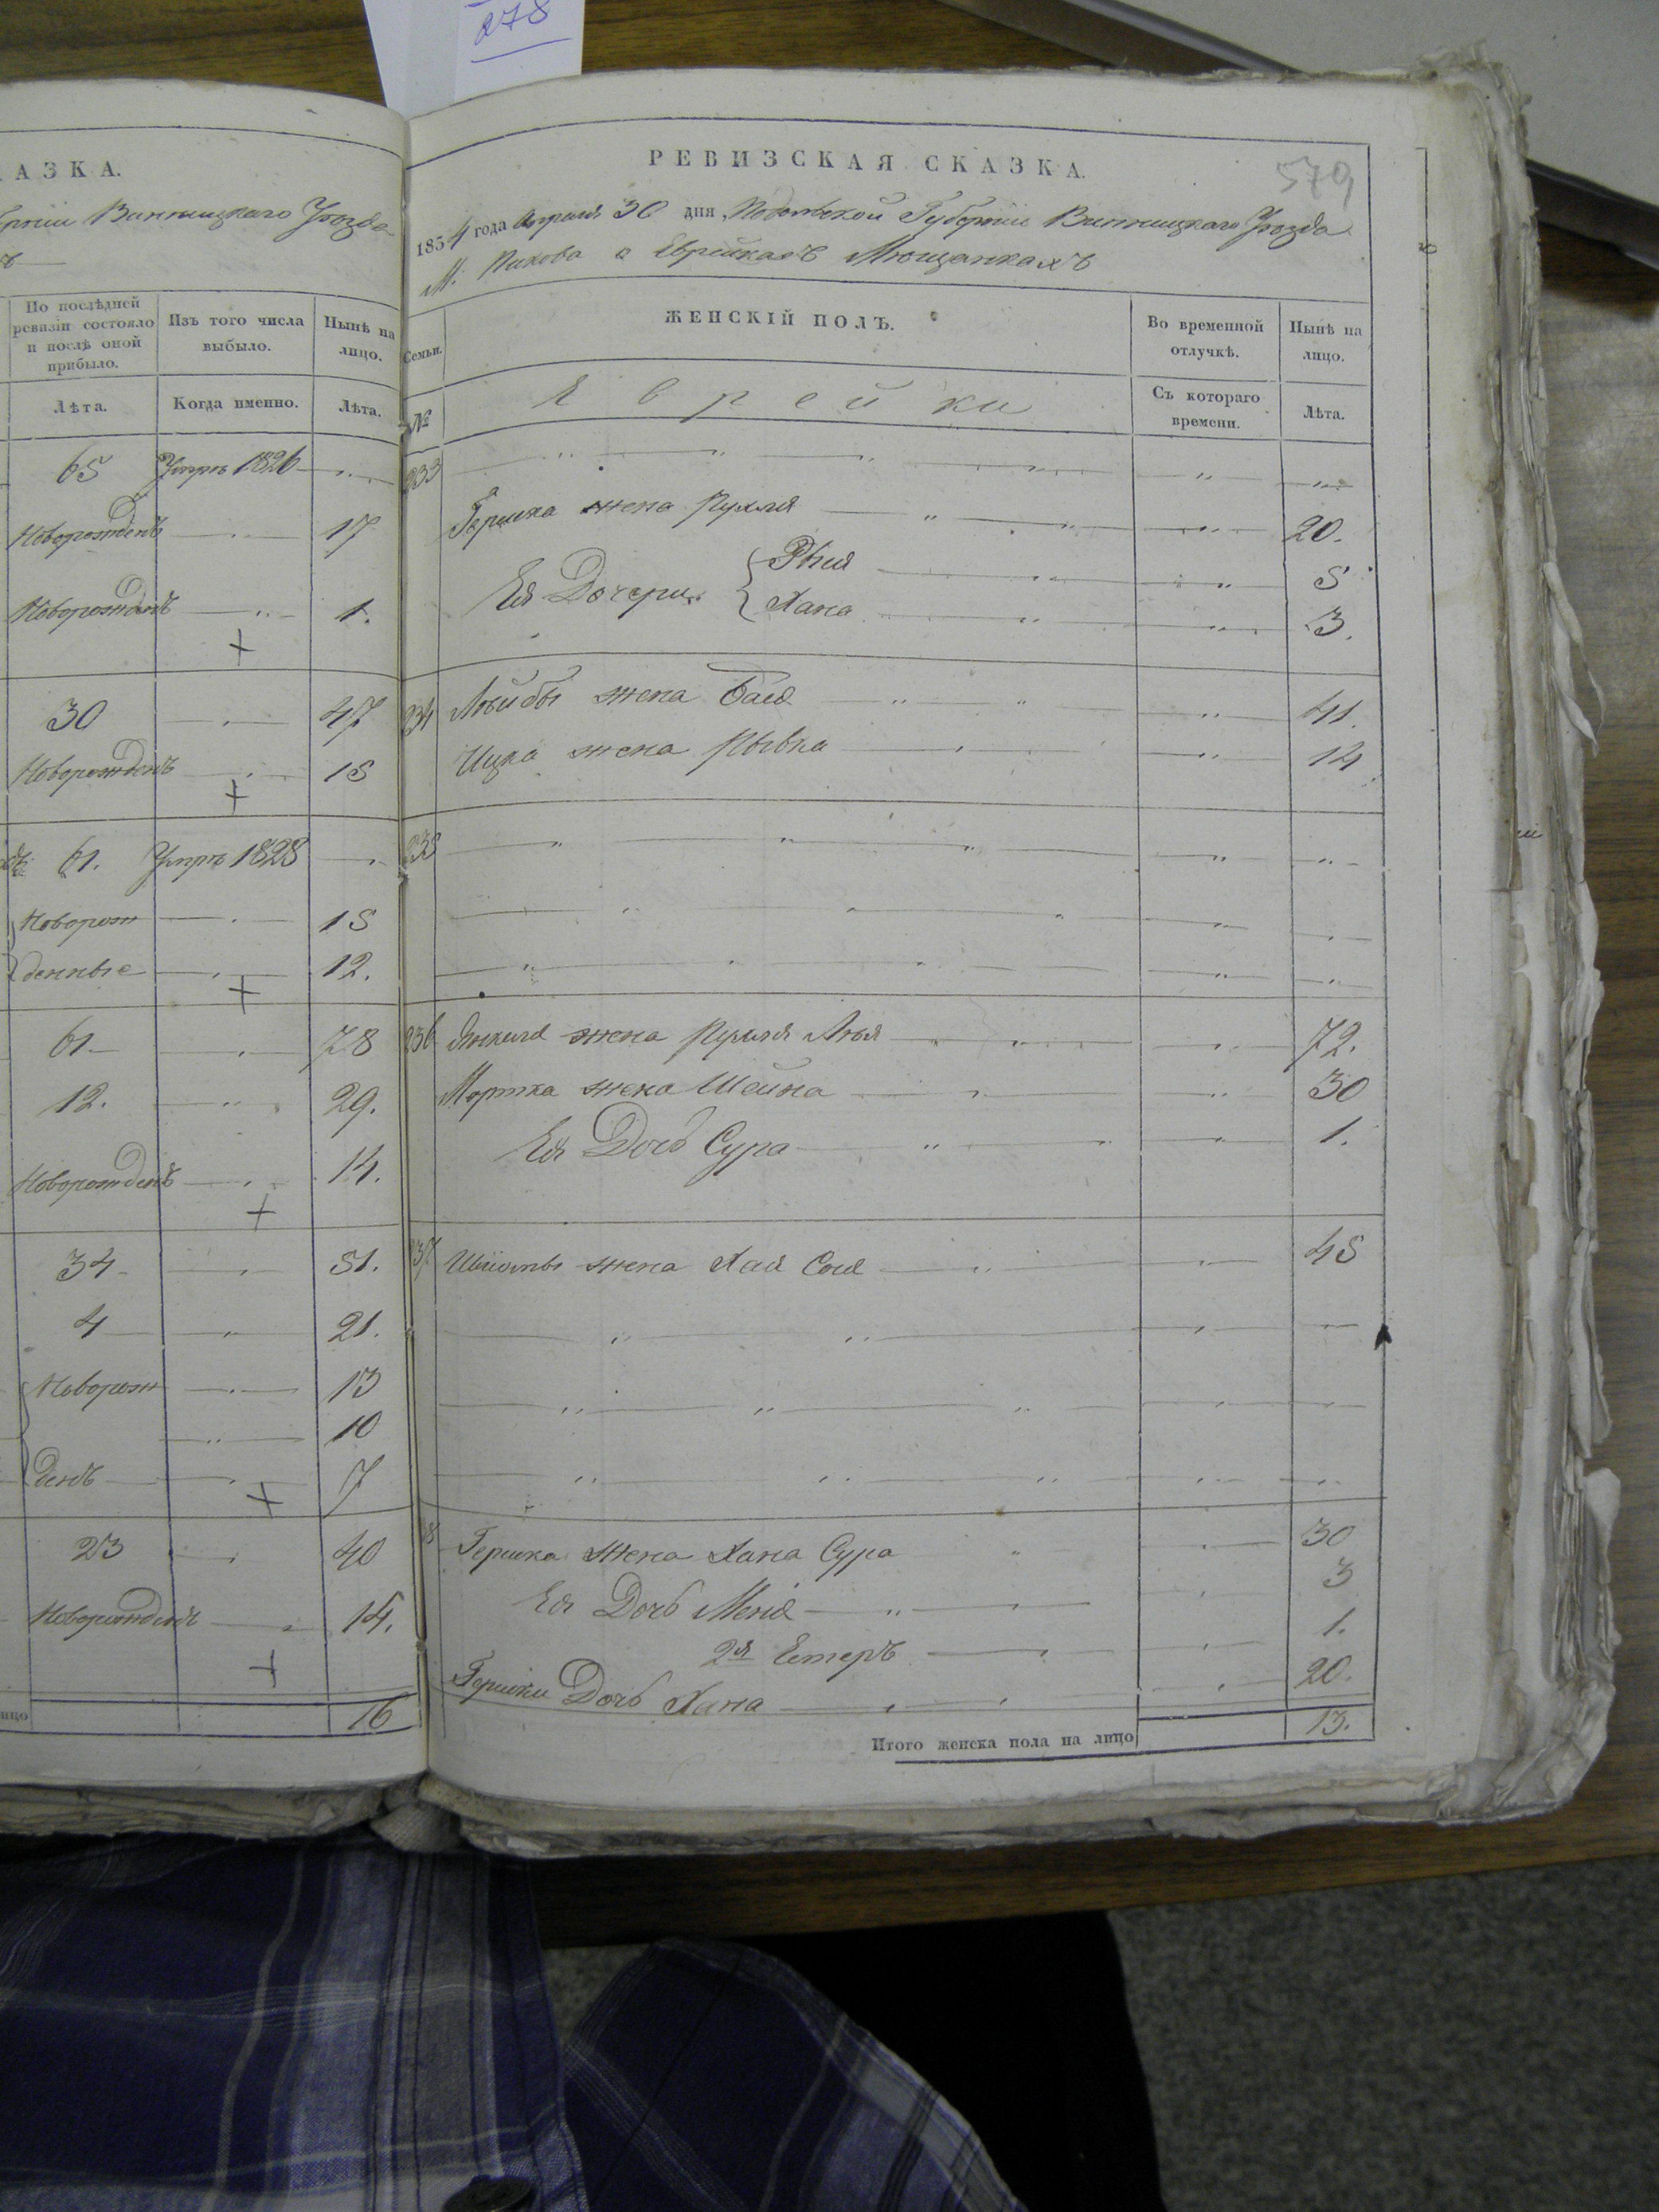 278
АЗКА.
Винницкаго Уѣзда
По послѣдней ревизіи состояло и послѣ оной прибыло.
Изъ того числа выбыло.
Нынѣ на лицо.
Лѣта.
Когда именно.
Лѣта.
65 Умръ 1826
Новорожденъ 17
Новорожденъ 1.
30 47
Новорожденъ 15
61. Умръ 1828
Новорож 15
денные 12.
61 78
12. 29.
Новорожденъ 14.
34 51.
4 21.
Новорож 13
10
денъ 7
23 40
Новорожденъ 14.
лицо 16
РЕВИЗСКАЯ СКАЗКА.
579
1854 года Апреля 30 дня Подольской Губерніи Винницкаго Уѣзда
М. Пикова о Еврейкахъ Мѣщанкахъ
Семьи.
ЖЕНСКІЙ ПОЛЪ.
Во временной отлучкѣ.
Нынѣ на лицо.
№
Еврейки
Съ котораго времени.
Лѣта.
233
Гершка жена Рухля 20.
Ея Дочери 5
Хана 3.
234 Лейбы жена Бася 41.
Ицка жена Рывка 14
235
236 Янкеля жена Рухля Лѣя 72.
Мортка жена Шейна 30
Ея Дочь Сура 1.
237 жена Хая Сося 45
Гершка жена Хана Сура 30
Ея Дочь Меня 3
2я Естеръ 1.
Гершки Дочь Хана 20.
Итого женска пола на лицо 13.